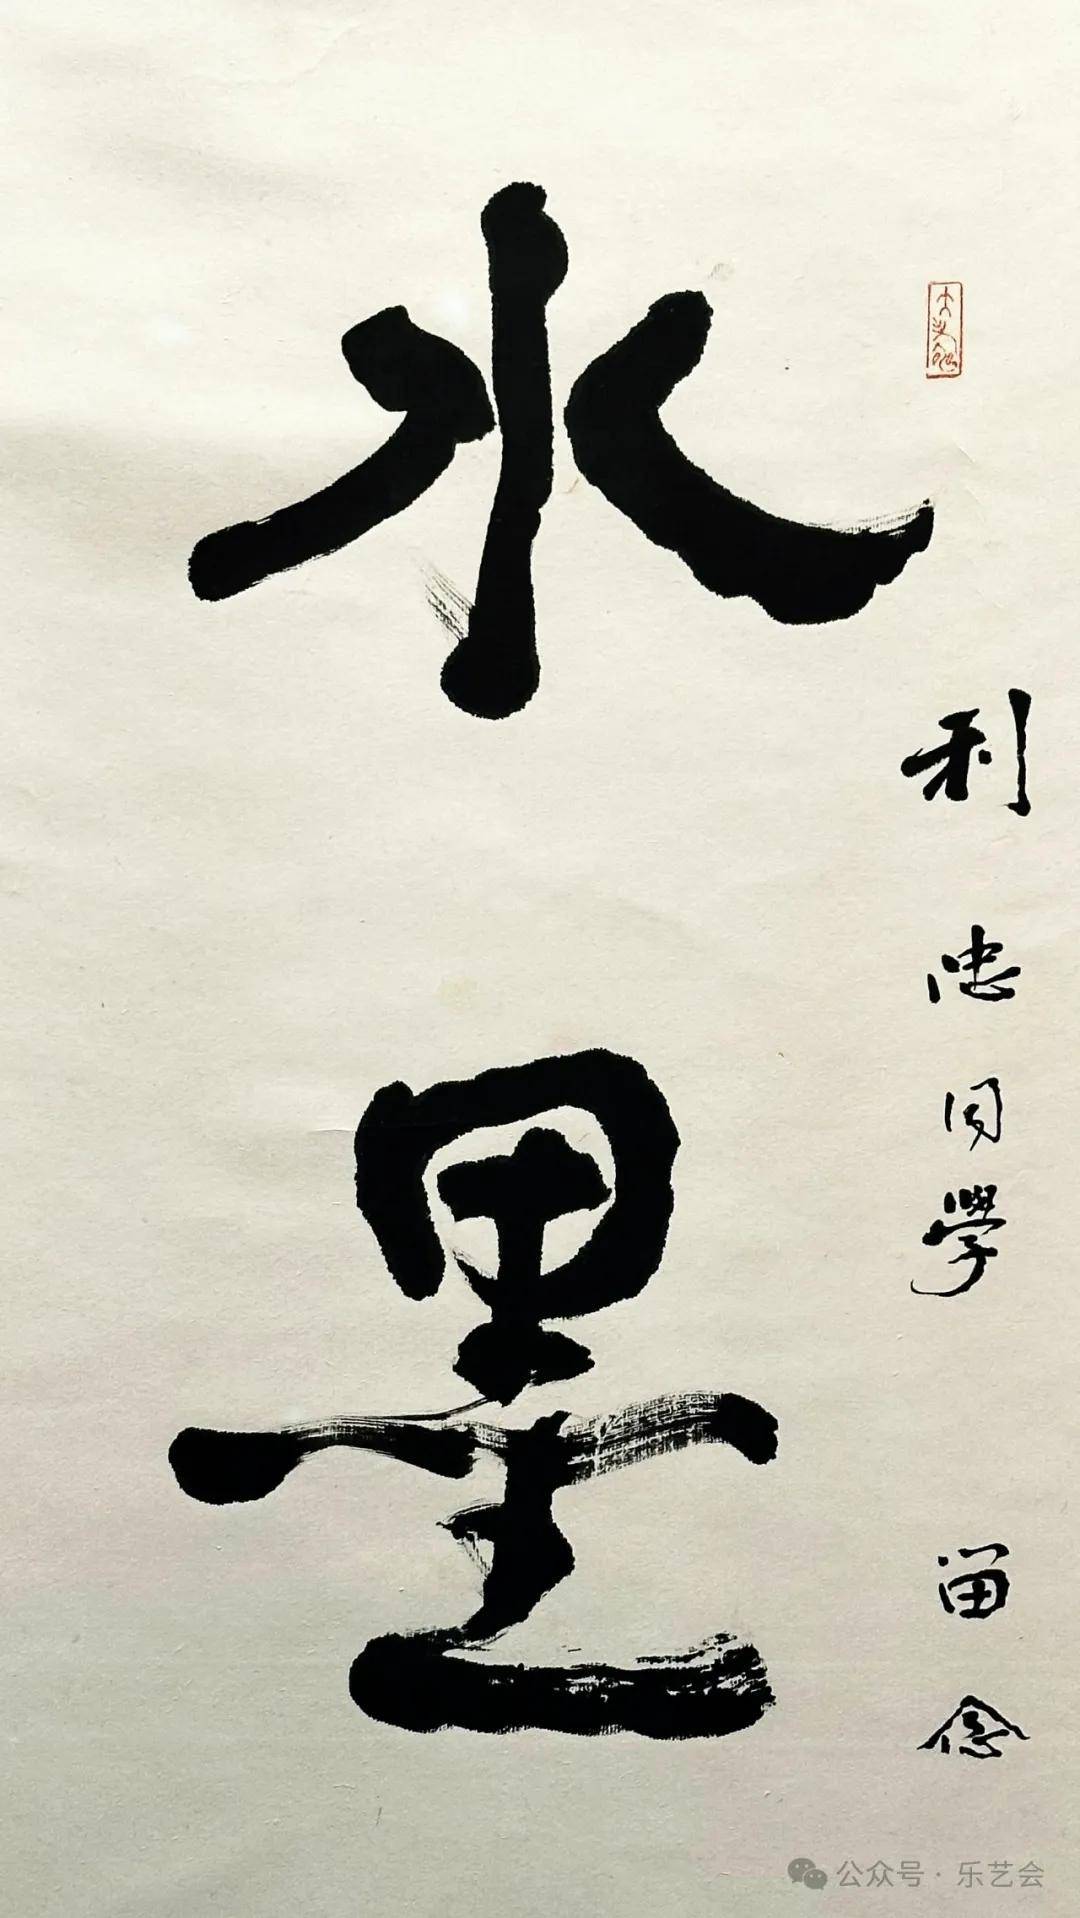 利忠同學留念
水墨
公众号·乐艺会